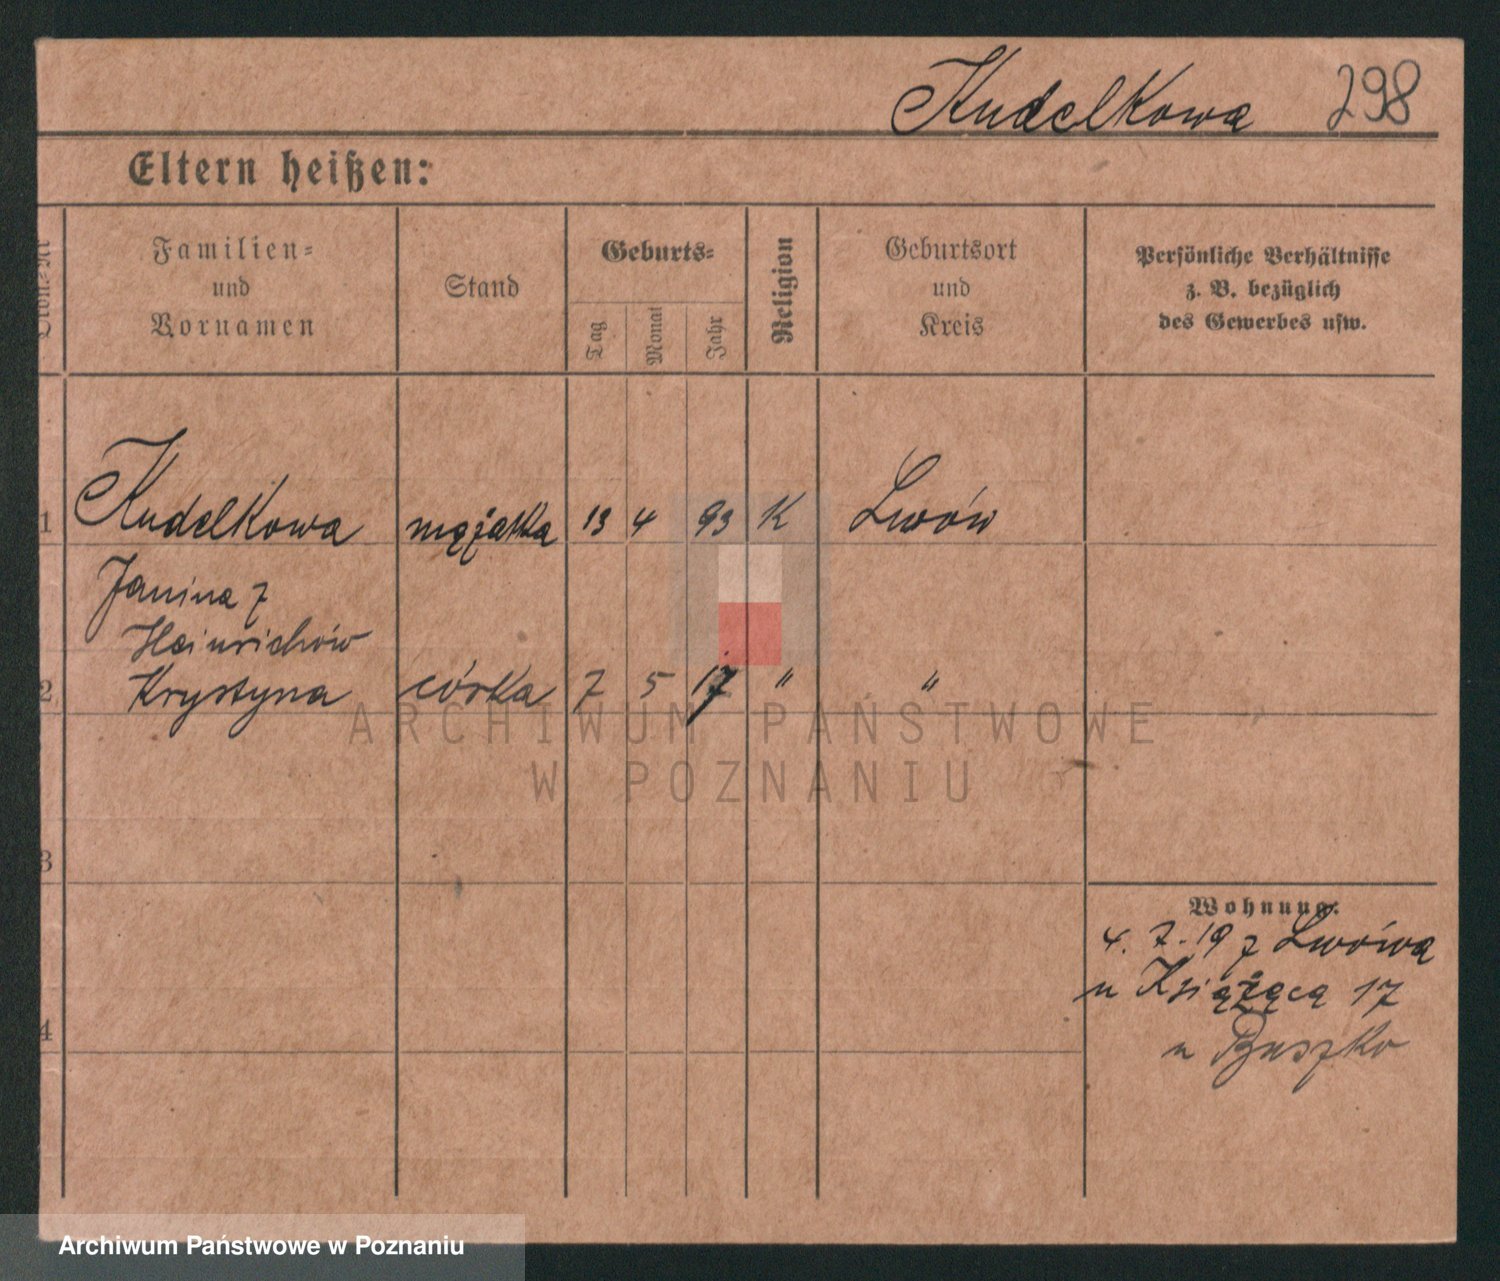 Kudelkowa 298
Eltern heißen:
Familien=
und
Vornamen
Stand
Geburts=
Tag
Monat
Jahr
Religion
Geburtsort
und
Kreis
Persönliche Verhältnisse
z. B. bezüglich
des Gewerbes usw.
1 Kudelkowa mężatka 13 4 93 K Lwów
Janina z
Heinrichów
2 Krystyna córka 7 5 17 " "
ARCHIWUM PAŃSTWOWE
W POZNANIU
3
Wohnung:
4. 7. 19 z Lwowa
u Książęca 17
4
u Buszko
Archiwum Państwowe w Poznaniu